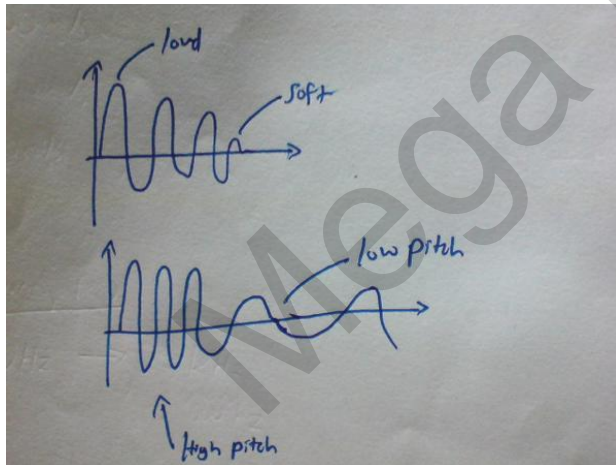 loud
soft
low pitch
High pitch
Mega